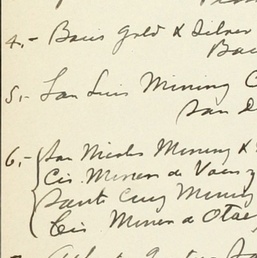 4,- Bacis Gold & Silver
Bac
5,- San Luis Mining C
San D
6,- San Nicolas Mining &
Cia. Minera de
Santa Cruz Mining
Cia. Minera de Otae